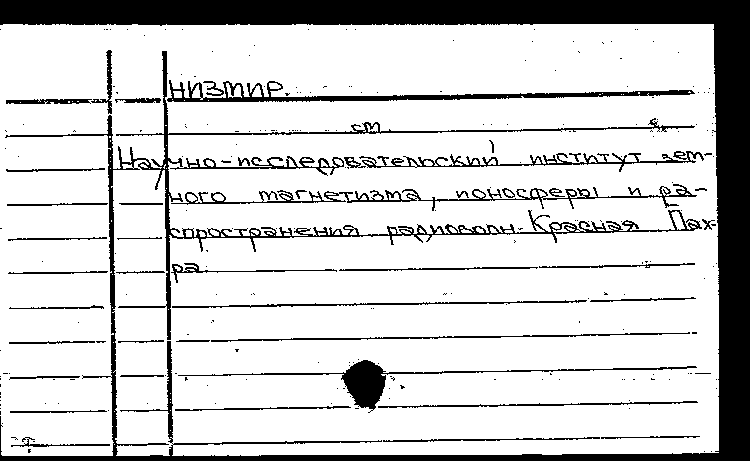 НИЗМИР.
см.
Научно-исследовательский институт зем-
ного магнетизма, ионосферы и ра-
спространения радиоволн. Красная Пах-
ра.